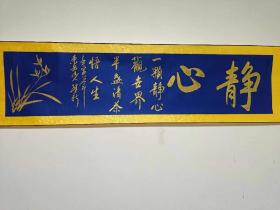 静心
一颗静心
观世界
半盏清茶
悟人生